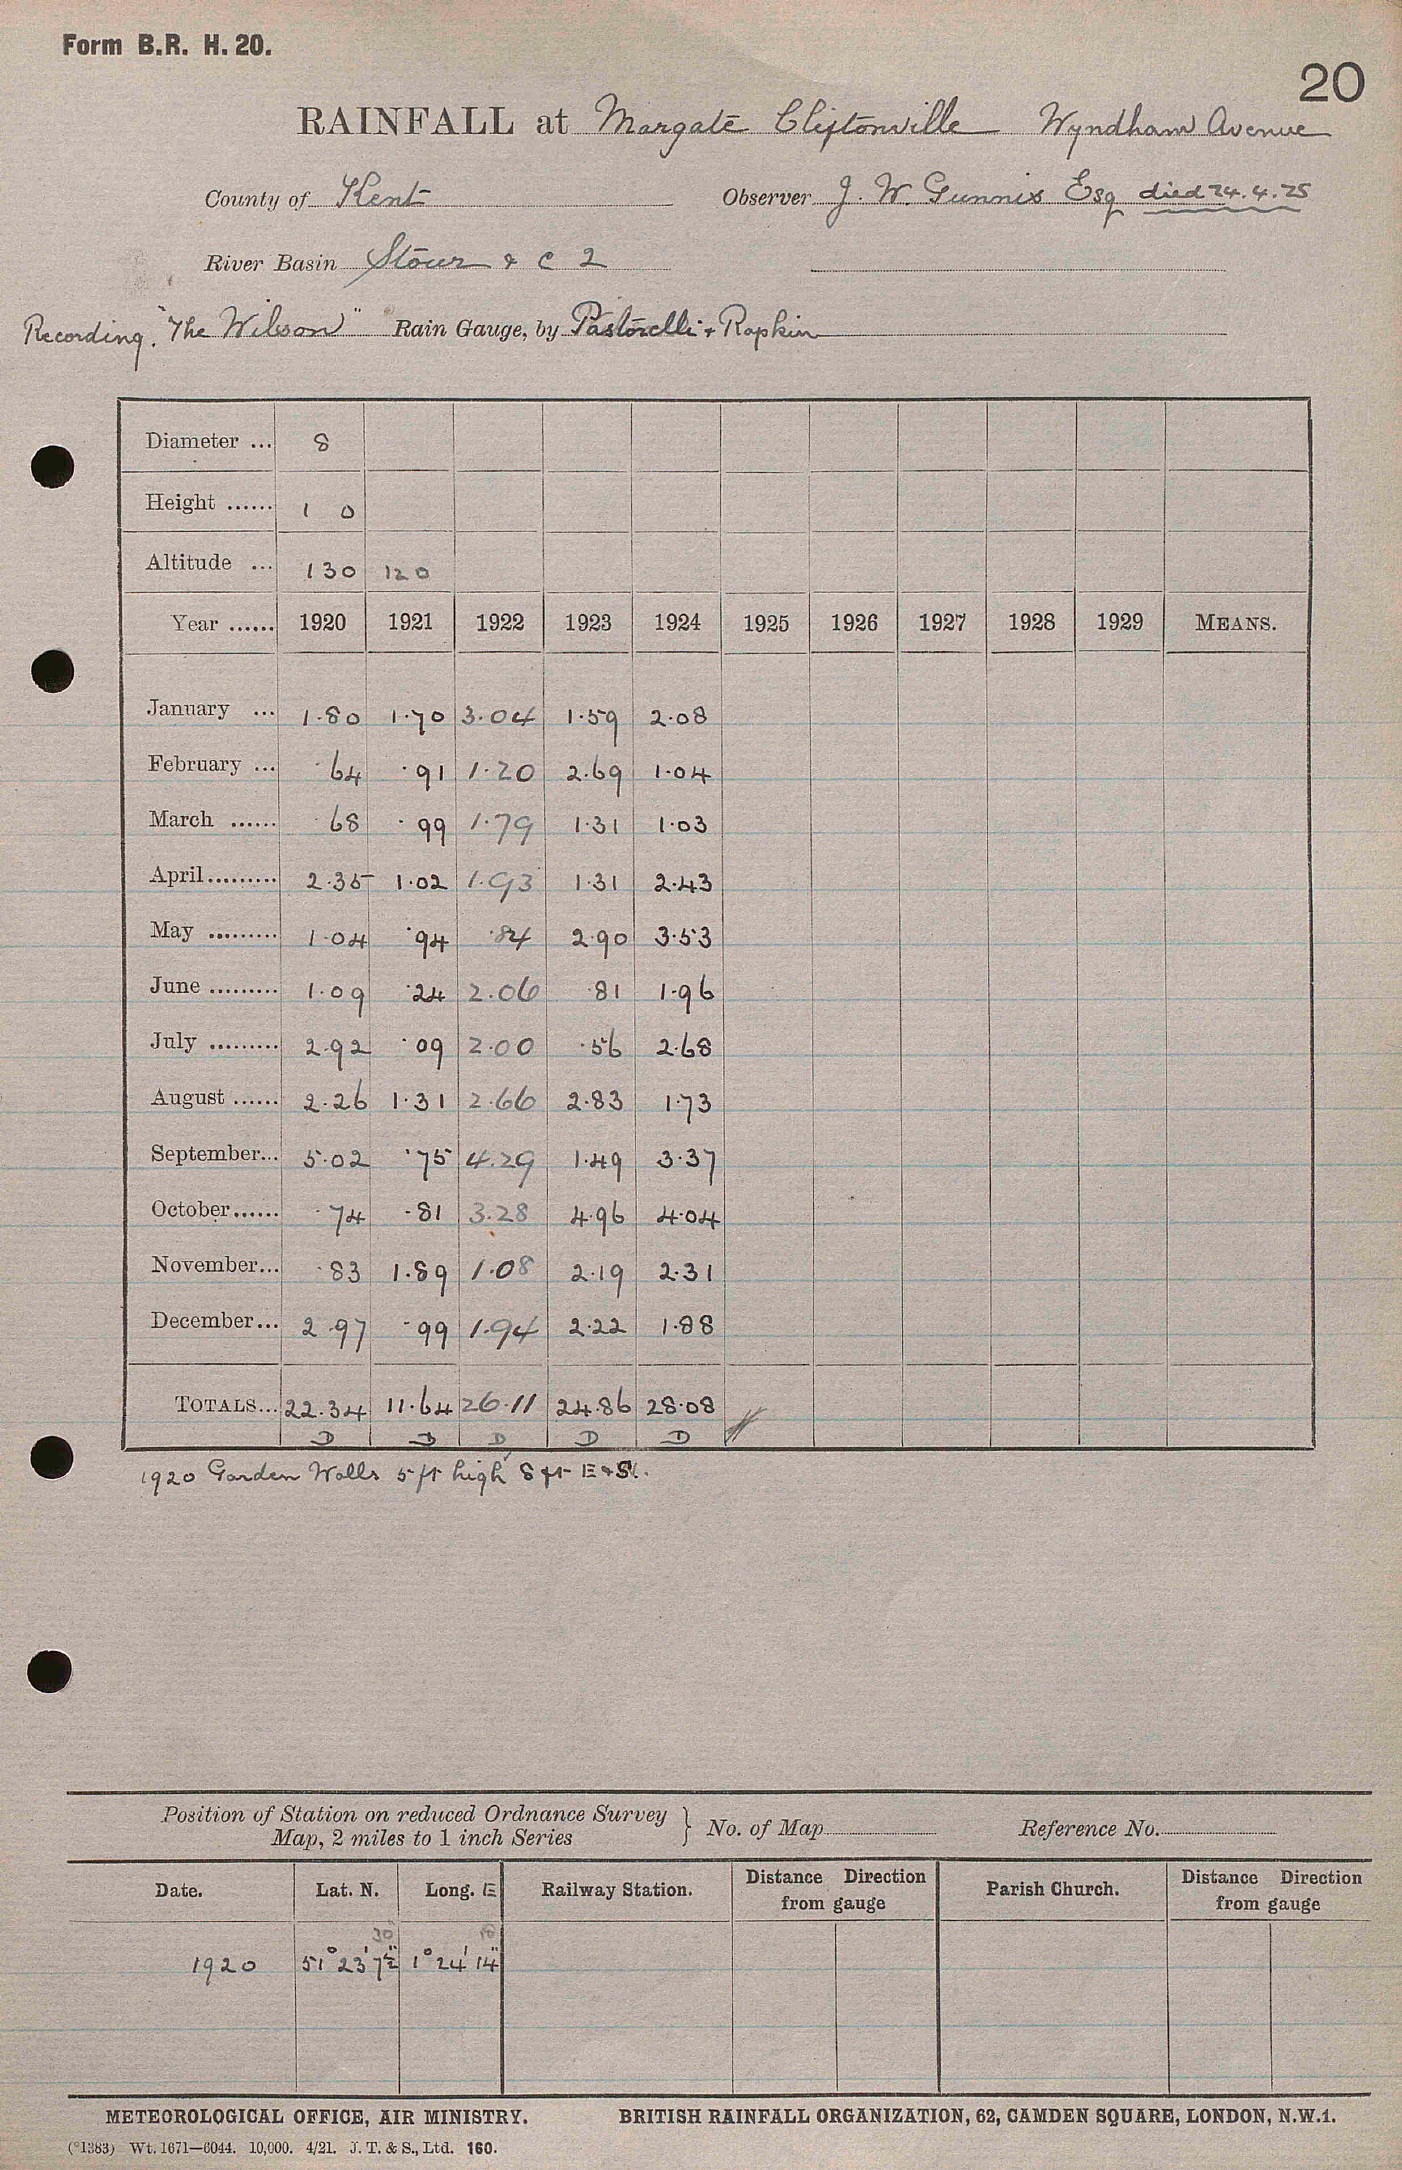 Form B.R. H. 20.
20
RAINFALL at Margate Cliftonville Wyndham Avenue
County of Kent Observer J. W. Gunnis Esq died 24.4.25
River Basin Stour & C 2
Recording. "The Wilson" Rain Gauge, by Pastorelli & Rapkin
Diameter ... 8
Height ...... 1 0
Altitude ... 130 120
Year ...... 1920 1921 1922 1923 1924 1925 1926 1927 1928 1929 MEANS.
January ... 1.80 1.70 3.04 1.59 2.08
February ... .64 .91 1.20 2.69 1.04
March ...... .68 .99 1.79 1.31 1.03
April......... 2.35 1.02 1.93 1.31 2.43
May ......... 1.04 .94 .84 2.90 3.53
June ......... 1.09 .24 2.06 .81 1.96
July ......... 2.92 .09 2.00 .56 2.68
August ...... 2.26 1.31 2.66 2.83 1.73
September... 5.02 .75 4.29 1.49 3.37
October...... .74 .81 3.28 4.96 4.04
November... .83 1.89 1.08 2.19 2.31
December... 2.97 .99 1.94 2.22 1.88
TOTALS... 22.34 11.64 26.11 24.86 28.08
D D D D D
1920 Garden Walls 5 ft high 8 ft E & S.
Position of Station on reduced Ordnance Survey
Map, 2 miles to 1 inch Series } No. of Map Reference No.
Date. Lat. N. Long. E Railway Station. Distance Direction from gauge Parish Church. Distance Direction from gauge
30
1920 51° 23' 7½" 1° 24' 14"
METEOROLOGICAL OFFICE, AIR MINISTRY. BRITISH RAINFALL ORGANIZATION, 62, CAMDEN SQUARE, LONDON, N.W.1.
(*1383) Wt. 1671—6044. 10,000. 4/21. J. T. & S., Ltd. 160.